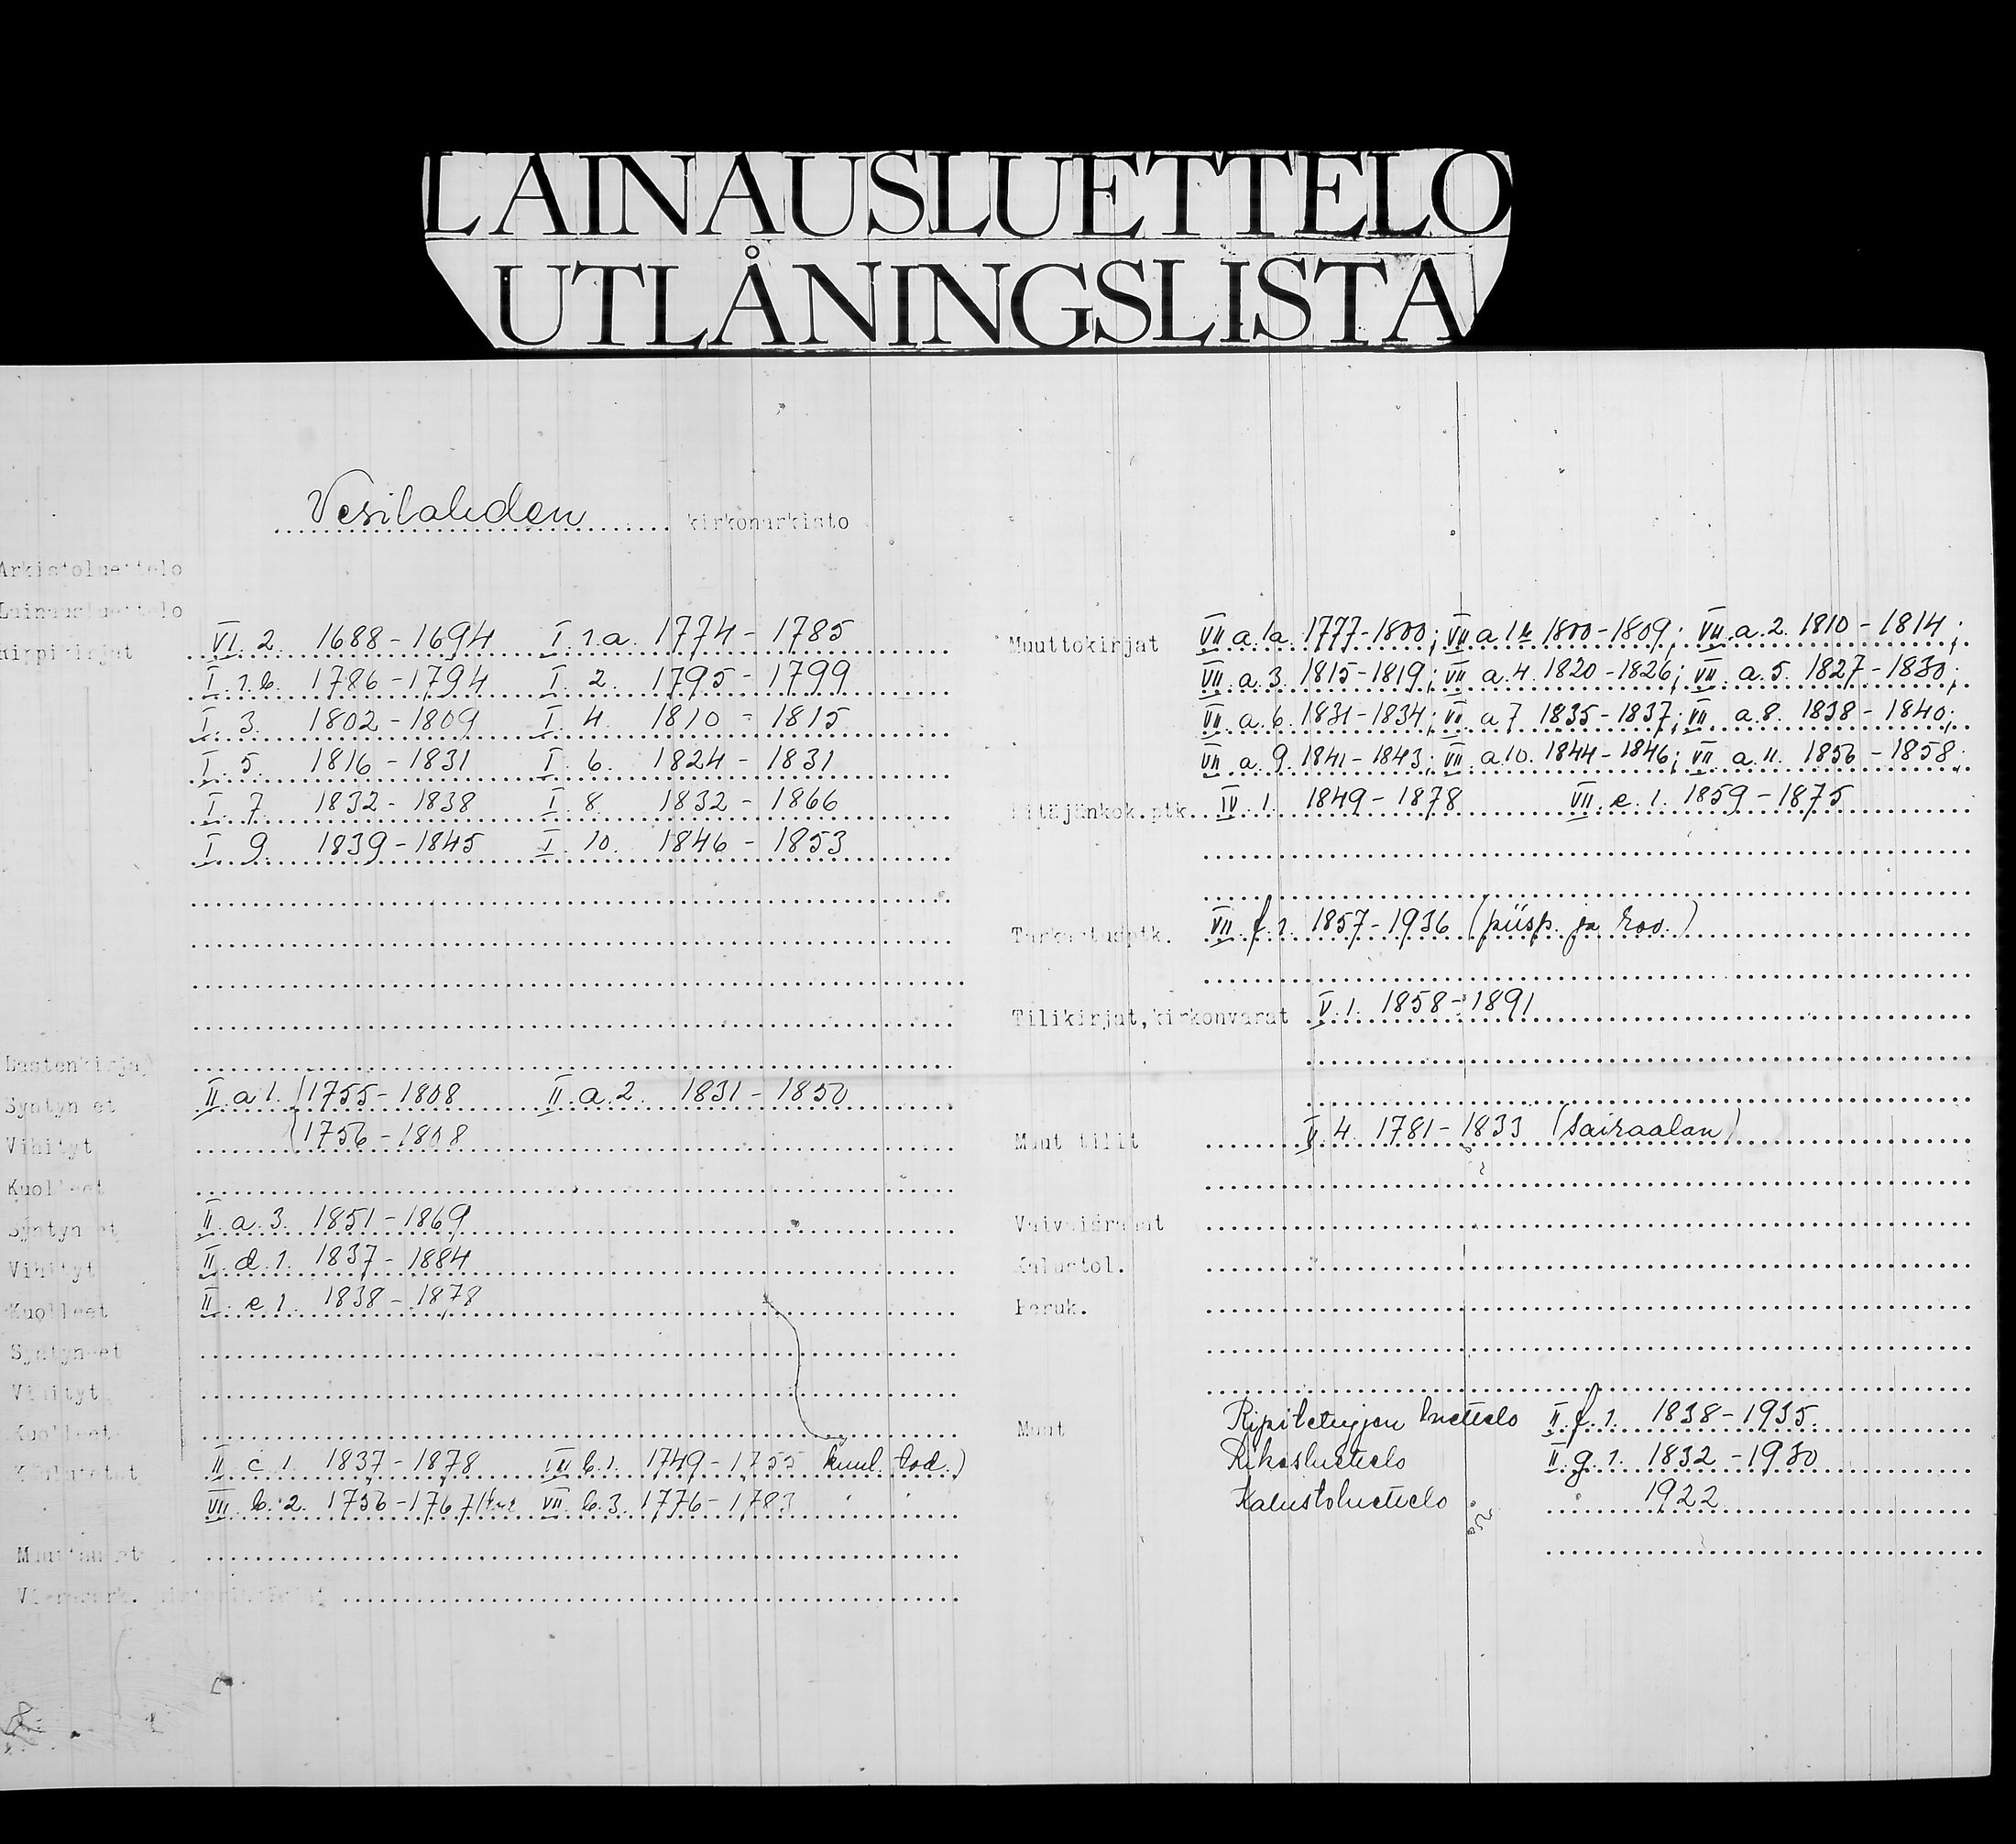 LAINAUSLUETTELO
UTLÅNINGSLISTA
Vesilahden kirkonarkisto
Arkistoluettelo
Lainausluettelo
Rippikirjat VI. 2. 1688-1694 I. 1.a. 1774-1785
I. 1.b. 1786-1794 I. 2. 1795-1799
I. 3. 1802-1809 I. 4. 1810-1815
I. 5. 1816-1831 I. 6. 1824-1831
I. 7 1832-1838 I. 8 1832-1866
I. 9. 1839-1845 I. 10. 1846-1853
Lastenkirjat
Syntyneet II. a 1. (1755-1808 II. a. 2. 1831-1850
Vihityt (1756-1808
Kuolleet
Syntyneet II. a. 3. 1851-1869
Vihityt II. d. 1. 1837-1884
Kuolleet II. e 1. 1838-1878
Syntyneet
Vihityt
Kuolleet
Kuulutetut II. c. 1. 1837-1878 VII b. 1. 1749-1755 kuul. tod.)
VII. b. 2. 1756-1767 VII. b. 3. 1776-1783
Muuttaneet
Muuttokirjat VII a. 1a. 1777-1800; VII a 1b 1800-1809; VII. a. 2. 1810-1814;
VII. a. 3. 1815-1819; VII a. 4. 1820-1826; VII. a. 5. 1827-1830;
VII. a. 6. 1831-1834; VII. a 7. 1835-1837; VII. a. 8. 1838-1840;
VII. a. 9. 1841-1843; VII. a 10. 1844-1846; VII. a. 11. 1856-1858;
Pitäjänkok.ptk. IV. 1. 1849-1878 VII. e. 1. 1859-1875
Tarkastusptk. VII. f. 1. 1857-1936 (piisp. ja rov.)
Tilikirjat, kirkonvarat V. 1. 1858-1891
Muut tilit V. 4. 1781-1833 (sairaalan)
Vaivaisrahat
Kalustol.
Peruk.
Muut Ripiletujen luettelo II. f. 1. 1838-1935.
Rikosluettelo II. g. 1. 1832-1930
Kalustoluettelo 1922